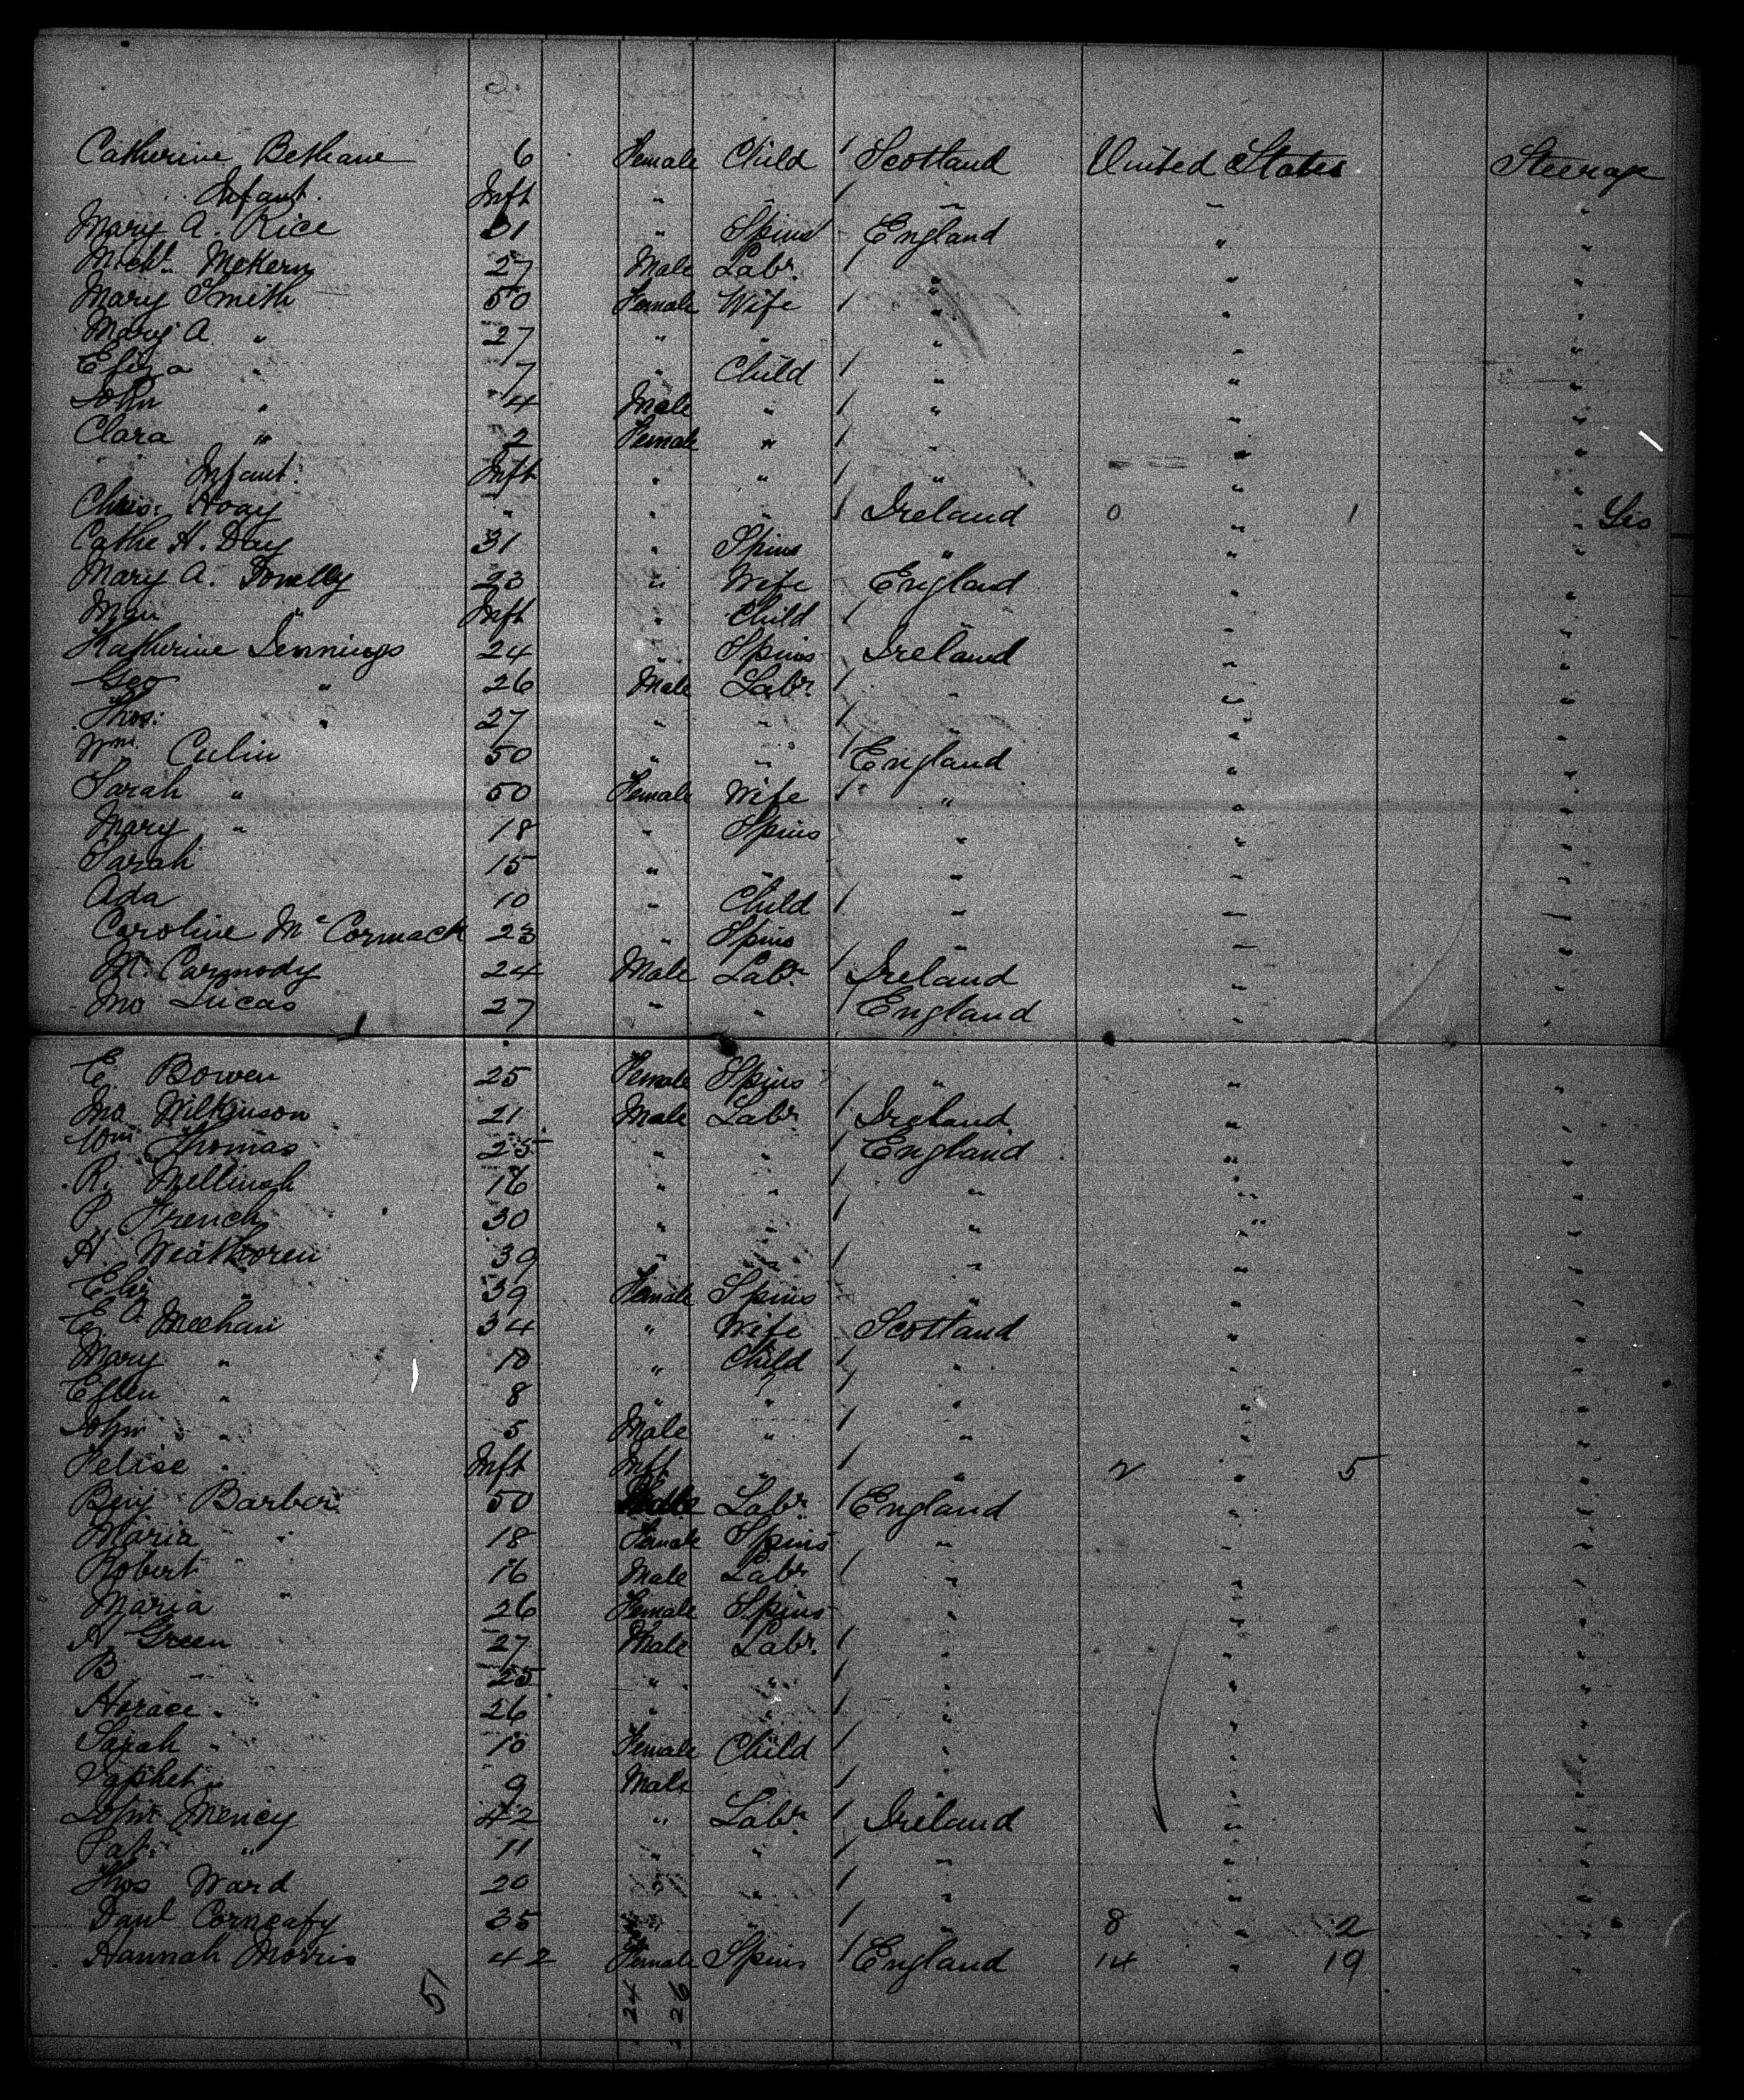 Catherine Bethane 6 Female Child / Scotland United States Steerage
Infant. Inft " " / " " "
Mary A. Rice 31 " Spins England " "
Michl. McKern 27 Male Labr. / " " "
Mary Smith 50 Female Wife / " " "
Mary A " 27 " " " " "
Eliza " 7 " Child / " " "
John " 4 Male " / " " "
Clara " 2 Female " / " " "
Infant. Inft " " / " " "
Chris: Hoay " " " / Ireland 0 " 1 "
Cathe H. Day 31 " Spins " " "
Mary A. Donelly 23 " Wife England " "
" Inft " Child / " " "
Katherine Jennings 24 " Spins Ireland " "
Geo " 26 Male Labr / " " "
Thos: " 27 " " / " " "
Wm. Culin 50 " " / England " "
Sarah " 50 Female Wife / " " "
Mary " 18 " Spins " " "
Sarah 15 " " " " "
Ada 10 " Child / " " "
Caroline McCormack 23 " Spins " " "
M. Carmody 24 Male Labr. / Ireland " "
Jno Lucas 27 " " / England " "
E. Bowen 25 Female Spins " " "
Jno Wilkinson 21 Male Labr / Ireland " "
Wm Thomas 25 " " / England " "
R. Mellinsh 16 " " / " " "
P. French 30 " " / " " "
H. Weathoren 39 " " / " " "
Eliz " 39 Female Spins " " "
E. Meehan 34 " Wife Scotland " "
Mary " 10 " Child / " " "
Ellen " 8 " " / " " "
John " 5 Male " / " " "
Felise " Inft Inft " / " 2 " 5 "
Benj Barber 50 Male Labr / England " "
Maria " 18 Female Spins " " "
Robert " 16 Male Labr / " " "
Maria " 26 Female Spins " " "
A. Green 27 Male Labr. / " " "
B " 25 " " / " " "
Horace " 26 " " / " " "
Sarah " 10 Female Child / " " "
Japhet " 9 Male / " " "
John Mency 42 " Labr / Ireland " "
Pat: " 11 " " / " " "
Thos Ward 20 " " / " " "
Danl Corneafy 35 " " / " 8 " 2 "
Hannah Morris 42 Female Spins / England 14 " 19 "
51 24 26